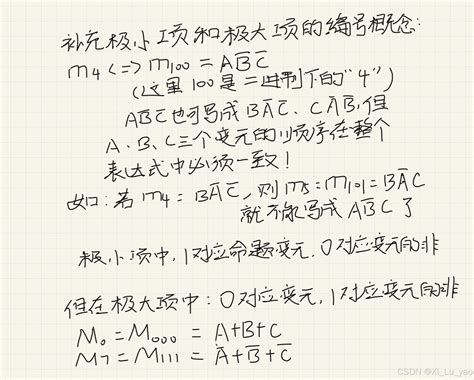 补充极小项和极大项的编号概念:
m₄ <=> m₁₀₀ = AB̅C̅
(这里100是二进制下的"4")
AB̅C̅也可写成B̅AC̅、C̅AB̅,但
A、B、C三个变元的顺序在整个
表达式中必须一致!
如:若m₄=B̅AC̅,则m₅=m₁₀₁=B̅AC
就不能写成AB̅C了
极小项中,1对应命题变元,0对应变元的非
但在极大项中:0对应变元,1对应变元的非
M₀=M₀₀₀ = A+B+C
M7=M₁₁₁ = A̅+B̅+C̅
CSDN @Xi_Lu_yao